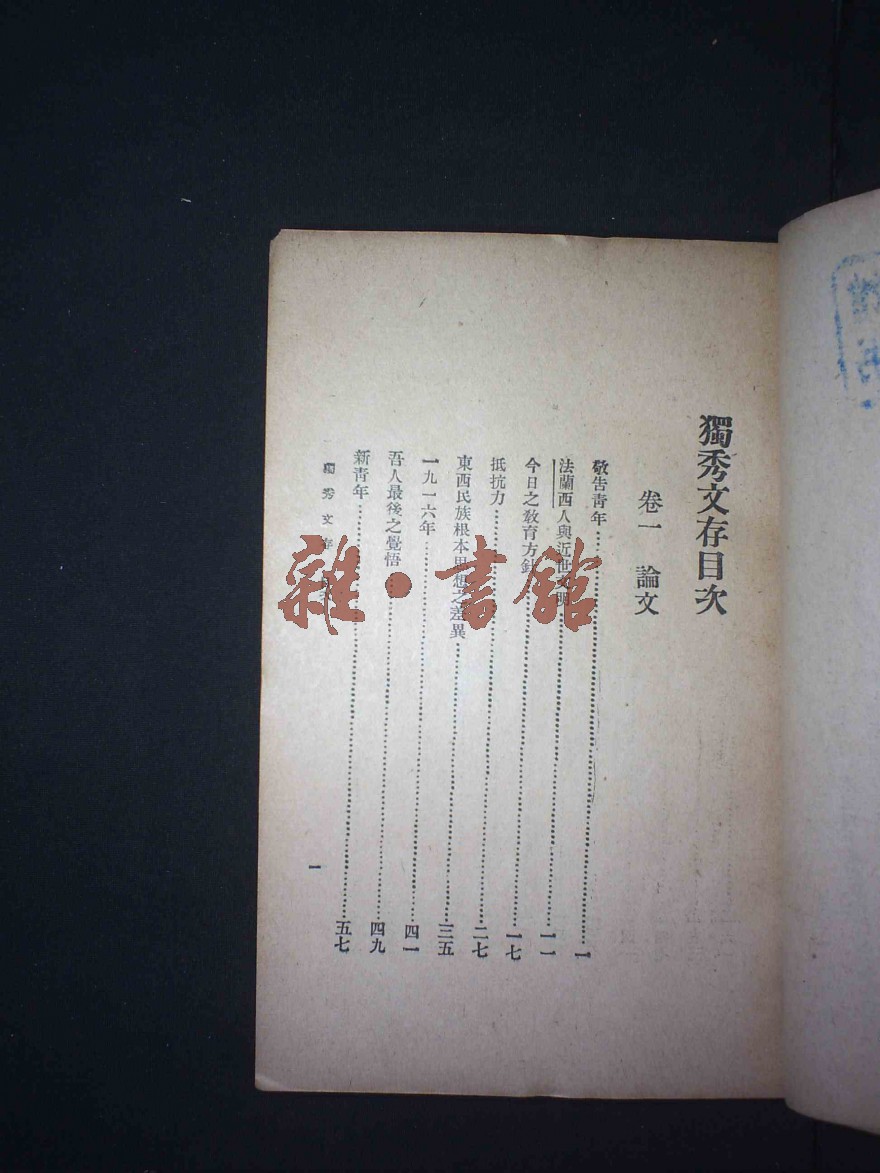 獨秀文存目次
卷一 論文
敬告青年……一
法蘭西人與近世文明……一一
今日之教育方針……一七
抵抗力……二七
東西民族根本思想之差異……三五
一九一六年……四一
吾人最後之覺悟……四九
新青年……五七
獨秀文存
一
雜·書館